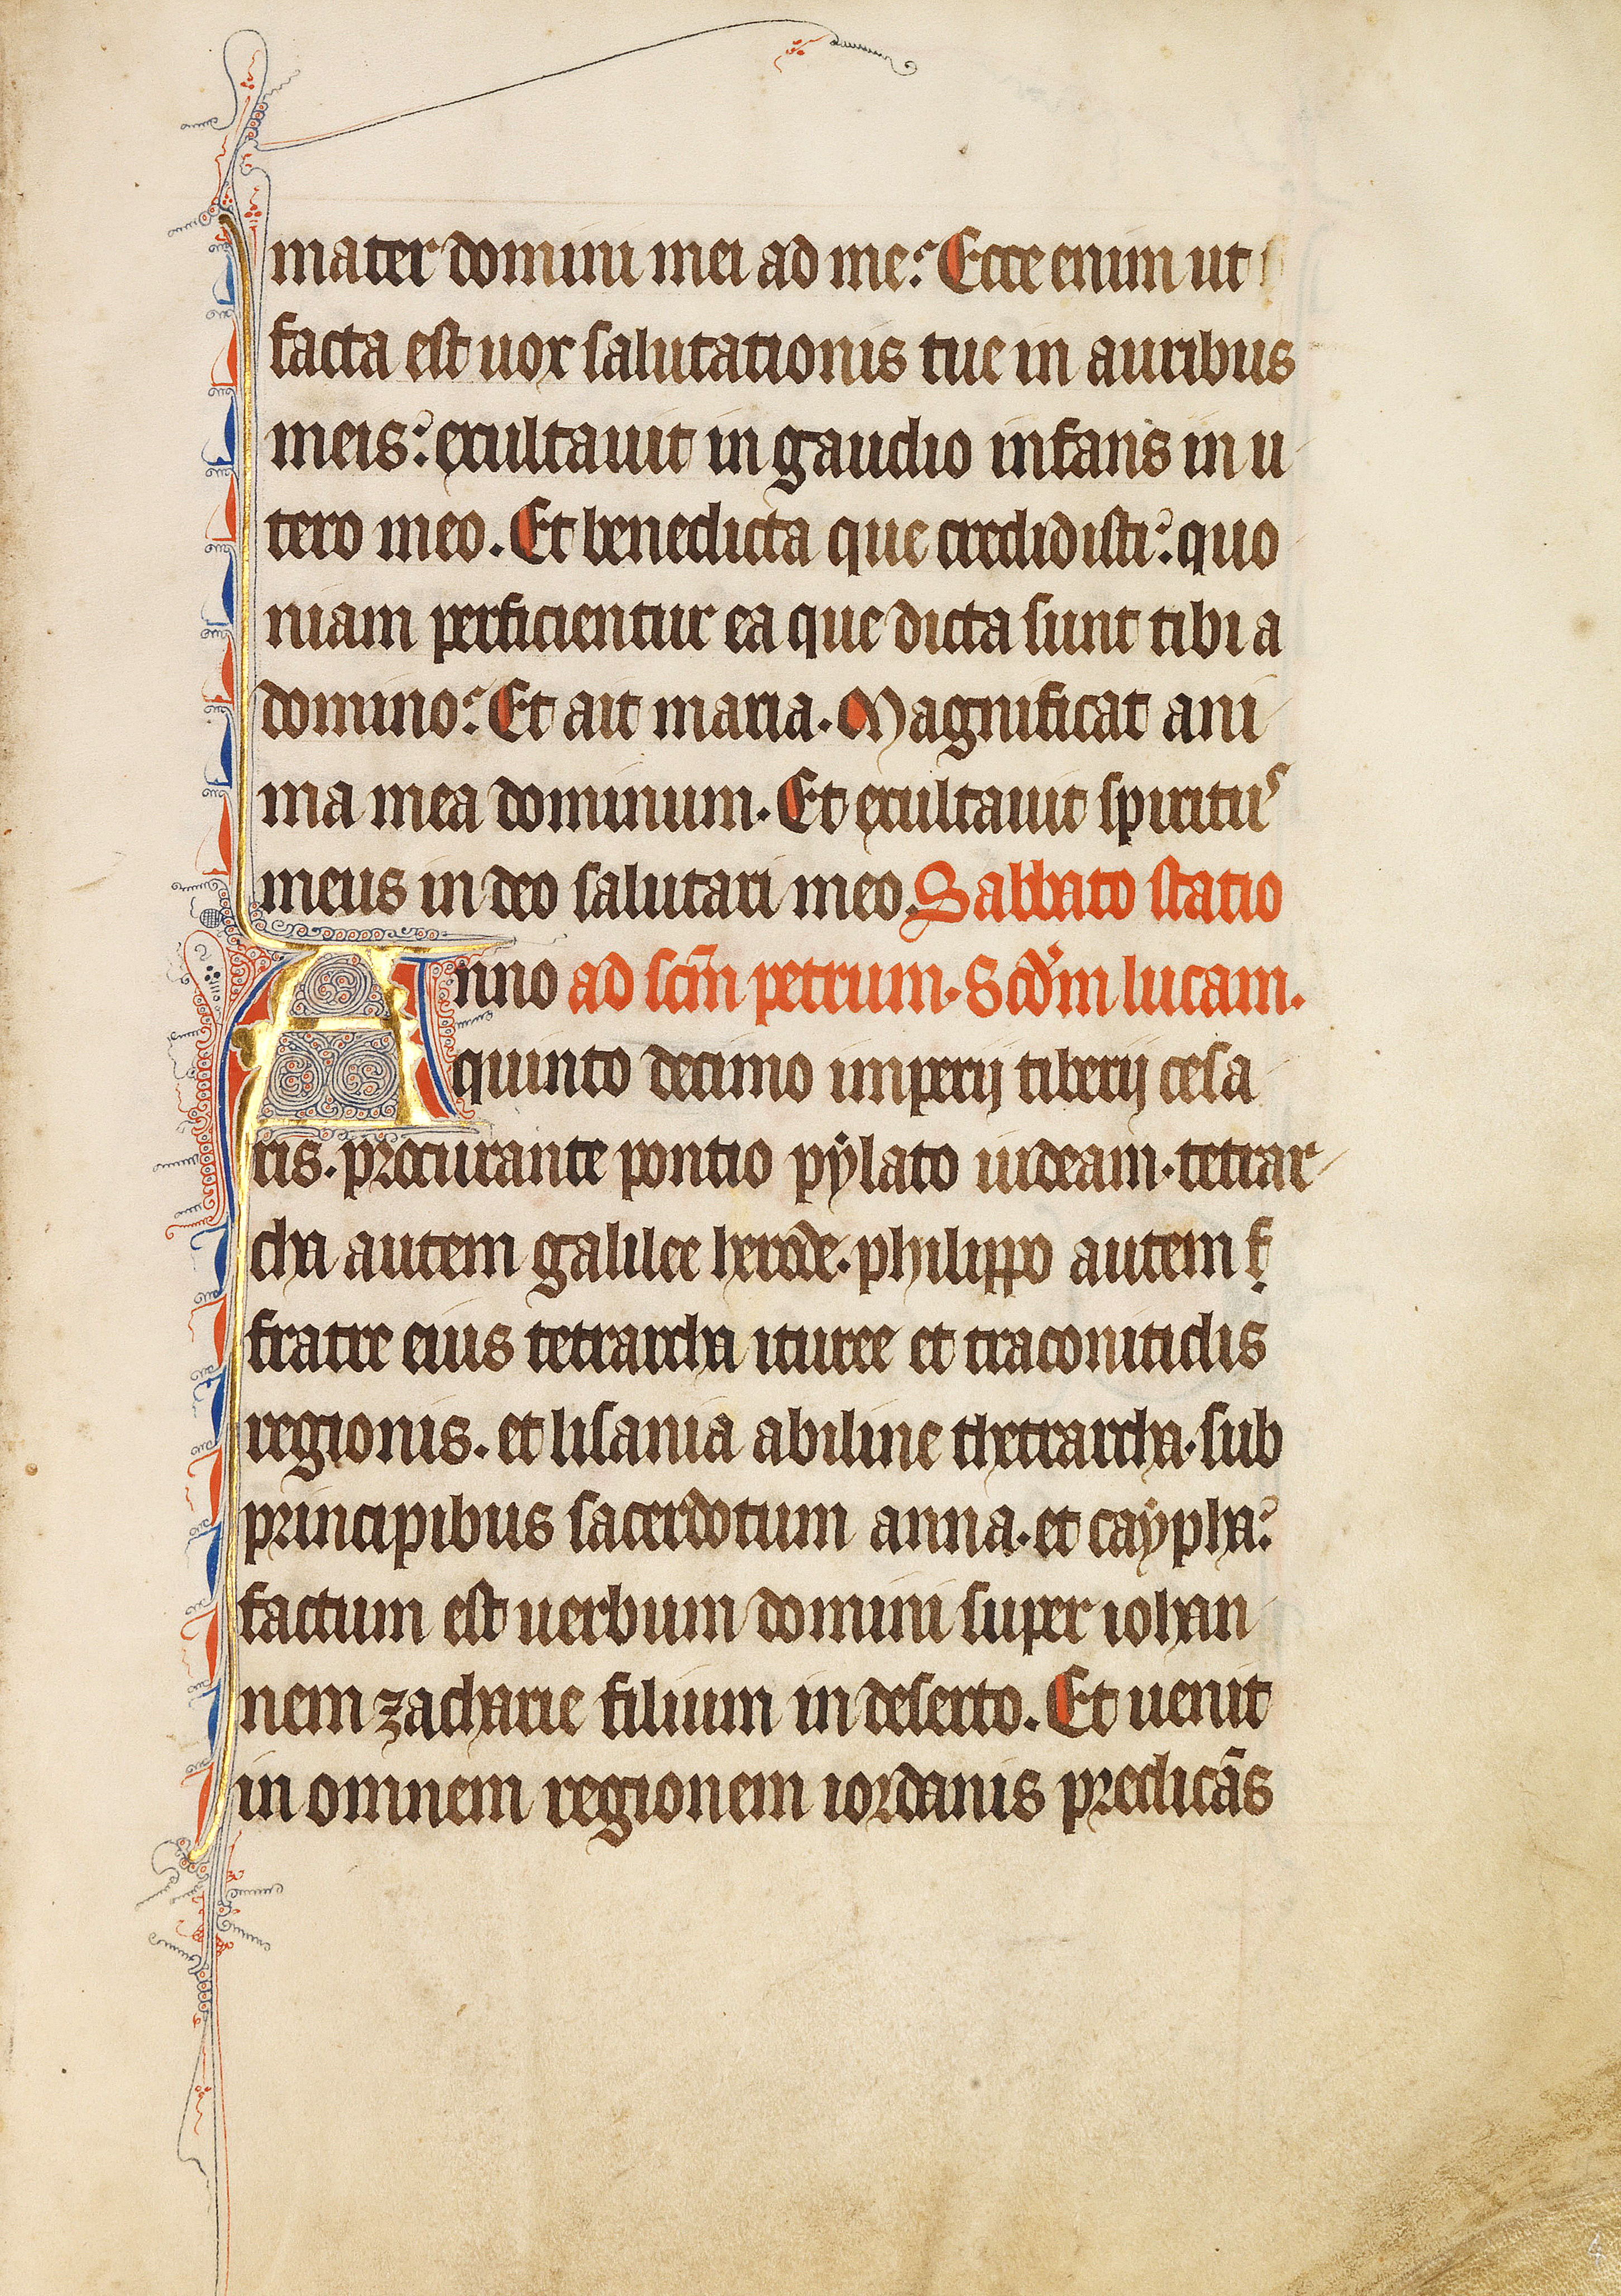 mater domini mei ad me. Ecce enim ut
facta est uox salutationis tue in auribus
meis: exultauit in gaudio infans in u
tero meo. Et benedicta que credidisti: quo
niam perficientur ea que dicta sunt tibi a
domino. Et ait maria. Magnificat ani
ma mea dominum. Et exultauit spiritus
meus in deo salutari meo. Sabbato statio
Anno ad scm̄ petrum. Scd'm lucam.
quinto decimo imperij tiberij cesa
ris. procurante pontio pẏlato iudeam. tetrar
cha autem galilee herode. philippo autem f
fratre eius tetrarcha ituree et traconitidis
regionis. et lisania abiline thetrarcha. sub
principibus sacerdotum anna. et caẏpha:
factum est uerbum domini super iohan
nem zacharie filium in deserto. Et uenit
in omnem regionem iordanis predicās